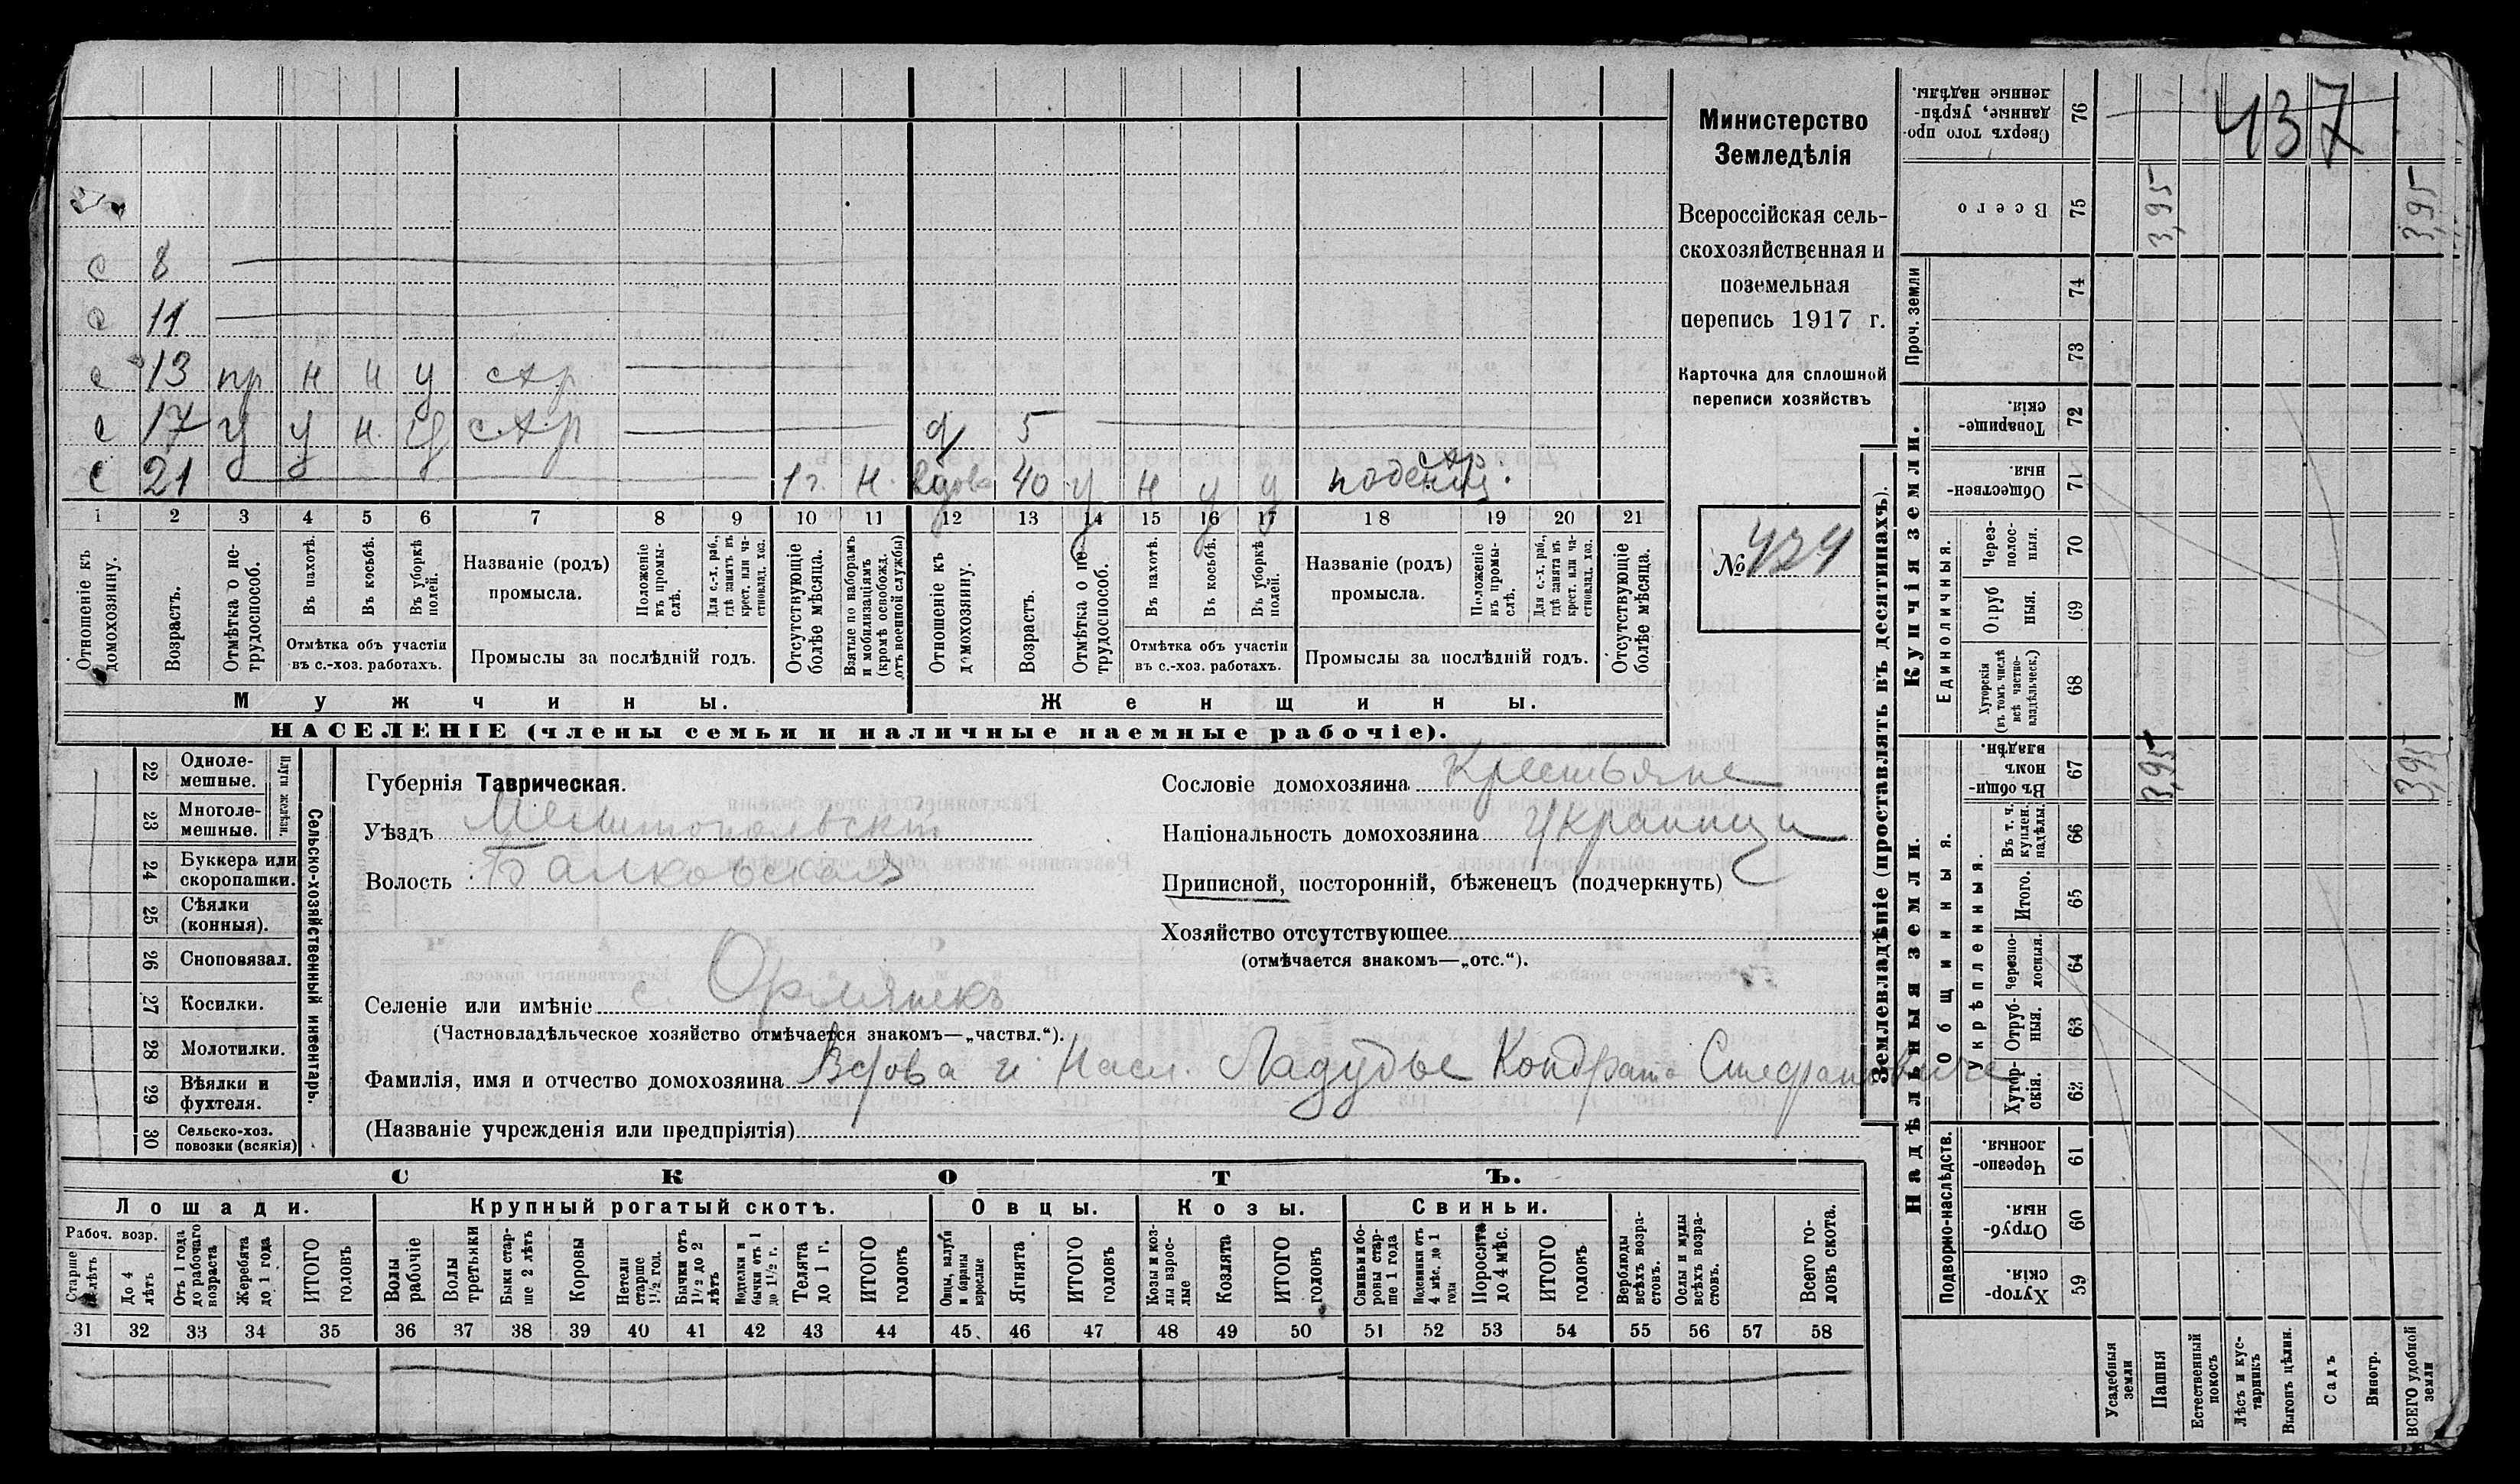 437
Министерство
Земледѣлія
Всероссійская сель-
скохозяйственная и
поземельная
перепись 1917 г.
Карточка для сплошной
переписи хозяйствъ
№ 424
с 8
с 11
с 13 пр н н у с х р
с 17 у у н у с.х.р
с 21 1 г. н.
д 5
вдова 40 у н у у поденщ. с.х.р
1 2 3 4 5 6 7 8 9 10 11 12 13 14 15 16 17 18 19 20 21
Отношеніе къ домохозяину.
Возрастъ.
Отмѣтка о не-трудоспособ.
Въ пахотѣ.
Въ косьбѣ.
Въ уборкѣ полей.
Отмѣтка объ участіи
въ с.-хоз. работахъ.
Названіе (родъ)
промысла.
Положеніе въ промы-слѣ.
Для с.-х. раб., гдѣ занятъ въ крест. или ча-стновлад. хоз.
Промыслы за послѣдній годъ.
Отсутствующіе болѣе мѣсяца.
Взятые по наборамъ и мобилизаціямъ (кромѣ освобожд. отъ военной службы)
Отношеніе къ домохозяину.
Возрастъ.
Отмѣтка о не-трудоспособ.
Въ пахотѣ.
Въ косьбѣ.
Въ уборкѣ полей.
Отмѣтка объ участіи
въ с.-хоз. работахъ.
Названіе (родъ)
промысла.
Положеніе въ промы-слѣ.
Для с.-х. раб., гдѣ занята въ крест. или ча-стновлад. хоз.
Промыслы за послѣдній годъ.
Отсутствующіе болѣе мѣсяца.
Мужчины. Женщины.
НАСЕЛЕНІЕ (члены семьи и наличные наемные рабочіе).
22 Одноле-мешные.
23 Многоле-мешные.
Плуги желѣзн.
24 Буккера или скоропашки.
25 Сѣялки (конныя).
26 Сноповязал.
27 Косилки.
28 Молотилки.
29 Вѣялки и фухтеля.
30 Сельско-хоз. повозки (всякія)
Сельско-хозяйственный инвентарь.
Губернія Таврическая.
Уѣздъ Мелитопольскій
Волость Балковская
Сословіе домохозяина Крестьяне
Національность домохозяина украинцы
Приписной, посторонній, бѣженецъ (подчеркнуть)
Хозяйство отсутствующее
(отмѣчается знакомъ—„отс.“).
Селеніе или имѣніе с. Орлянскъ
(Частновладѣльческое хозяйство отмѣчается знакомъ—„частвл.“).
Фамилія, имя и отчество домохозяина Вдова и Насл. Ладудье Кондрата Стефановича
(Названіе учрежденія или предпріятія)
СКОТЪ.
Лошади. Крупный рогатый скотъ. Овцы. Козы. Свиньи.
Рабоч. возр.
Старше лѣтъ
До 4 лѣтъ
Отъ 1 года до рабочаго возраста
Жеребята до 1 года
ИТОГО головъ
Волы рабочіе
Волы третьяки
Быки стар-ше 2 лѣтъ
Коровы
Нетели старше 1½ год.
Бычки отъ 1½ до 2 лѣтъ
бычки отъ 1 до 1½ г.
Телята до 1 г.
ИТОГО головъ
Овцы, валухи и бараны взрослые
Ягнята
ИТОГО головъ
Козы и коз-лы взрос-лые
Козлята
ИТОГО головъ
Свиньи и бо-ровы стар-ше 1 года
Подсвинки отъ 4 мѣс. до 1 года
Поросята до 4 мѣс.
ИТОГО головъ
Верблюды всѣхъ возра-стовъ.
Ослы и мулы всѣхъ возра-стовъ.
Всего го-ловъ скота.
31 32 33 34 35 36 37 38 39 40 41 42 43 44 45 46 47 48 49 50 51 52 53 54 55 56 57 58
Землевладѣніе (проставлять въ десятинахъ).
Купчія земли.
Надѣльныя земли.
Сверхъ того про-данные, укрѣп-ленные надѣлы. 76
Всего 75 3,95 3,95
Проч. земли 74 73
Товарище-скія. 72
Обществен-ныя 71
Единоличныя.
Через-полос-ныя. 70
Отруб-ныя. 69
Хуторскія (въ томъ числѣ всѣ частно-владѣльческ.) 68
Общинныя.
Въ общи-номъ владѣн. 67 3,95 3,95
Укрѣпленныя.
Въ т. ч. куплен. надѣлы. 66
Итого. 65
Черезпо-лосныя. 64
Отруб-ныя. 63
Хутор-скія. 62
Подворно-наслѣдств.
Черезпо-лосныя. 61
Отруб-ныя. 60
Хутор-скія. 59
Усадебныя земли
Пашня
Естественный покосъ
Лѣсъ и кус-тарникъ
Выгонъ цѣлин.
Садъ
Виногр.
ВСЕГО удобной земли